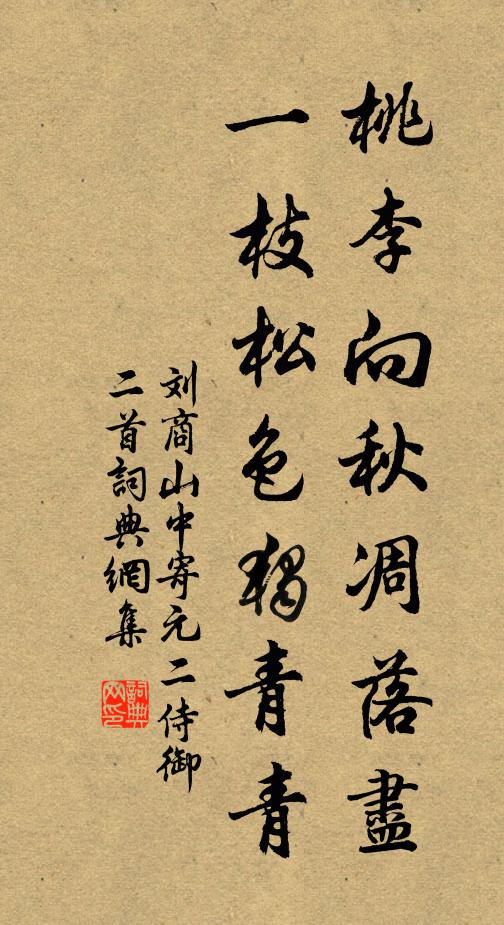 桃李向秋凋落盡
一枝松色獨青青
刘商山中寄元二侍御
二首詞典網集
詞典网印